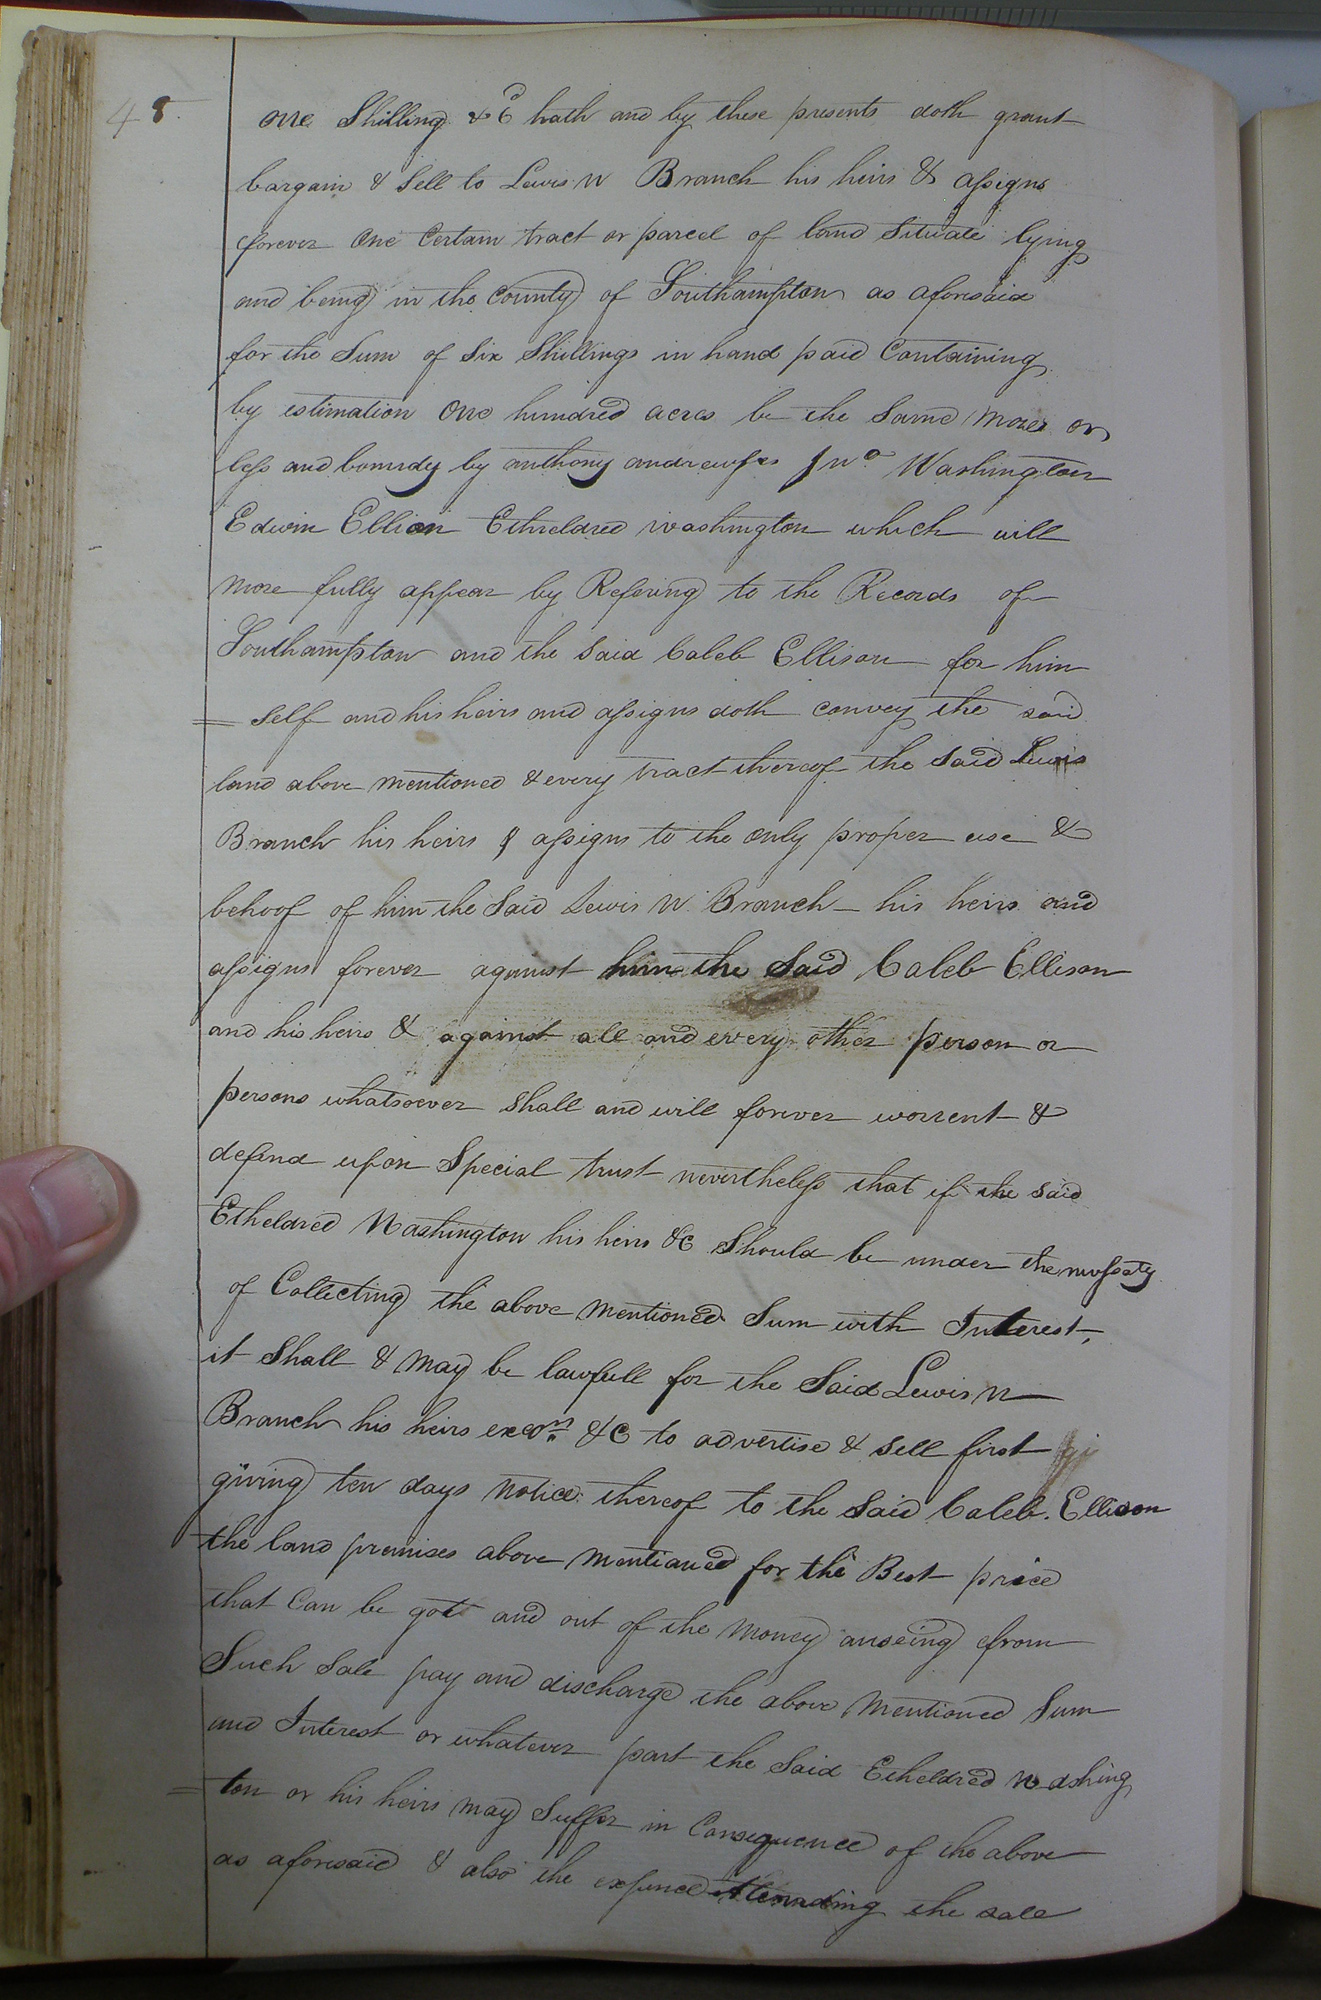 48.
one Shilling &c hath and by these presents doth grant
bargain & Sell to Lewis W Branch his heirs & assigns
forever One Certain tract or parcel of land Situate lying
and being in the County of Southampton as aforesaid
for the Sum of Six Shillings in hand paid Containing
by estimation One hundred acres be the Same More or
less and bounded by anthony andrews Jno Washington
Edwin Ellison Etheldred Washington which will
more fully appear by Refering to the Records of
Southampton and the Said Caleb Ellison for him
= Self and his heirs and assigns doth convey the said
land above mentioned & every tract thereof the Said Lewis
Branch his heirs & assigns to the only proper use &
behoof of him the Said Lewis W. Branch his heirs and
assigns forever against him the Said Caleb Ellison
and his heirs & against all and every other person or
persons whatsoever Shall and will forever worrent &
defend upon Special trust nevertheless that if the said
Etheldred Washington his heirs &C Should be under the
of Collecting the above mentioned Sum with Interest,
it Shall & May be lawfull for the Said Lewis W
Branch his heirs exeors &C to advertise & Sell first
giving ten days Notice thereof to the Said Caleb. Ellison
the land premises above mentioned for the Best price
that Can be got and out of the Money from
Such Sale pay and discharge the above Mentioned Sum
and Interest or whatever part the Said Etheldred Washing
= ton or his heirs may Suffer in Consequence of the above
as aforesaid & also the expence Attending the sale